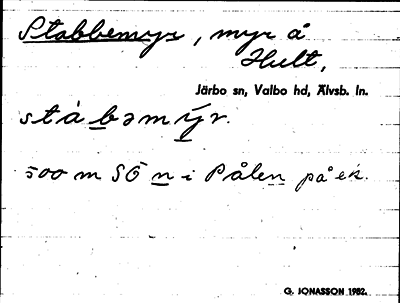 Stabbemyr, myr å
Hult,
Järbo sn, Valbo hd, Älvsb. ln.
stàbəmýr.
500 m SÖ n i Pålen på ek.
G. JONASSON 1982.